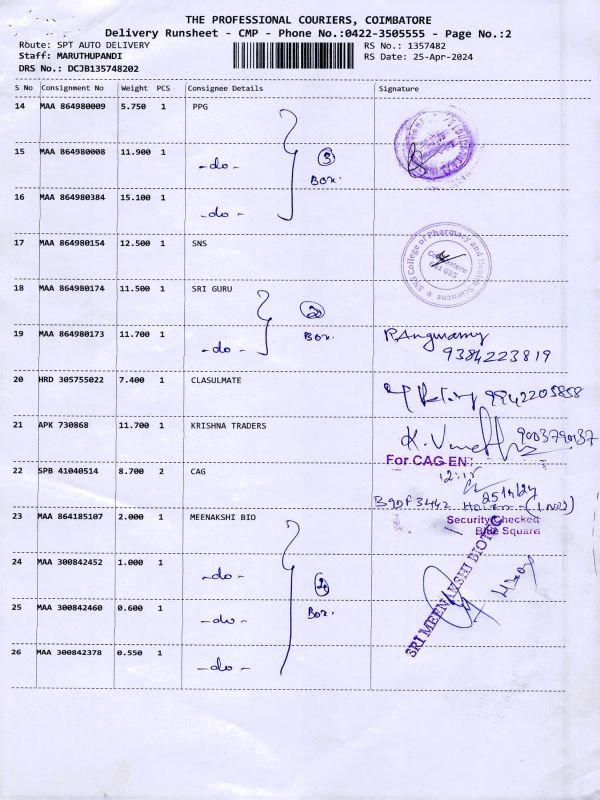 THE PROFESSIONAL COURIERS, COIMBATORE
Delivery Runsheet - CMP - Phone No.:0422-3505555 - Page No.:2
Route: SPT AUTO DELIVERY RS No.: 1357482
Staff: MARUTHUPANDI RS Date: 25-Apr-2024
DRS No.: DCJB135748202
S No Consignment No Weight PCS Consignee Details Signature
14 MAA 864980009 5.750 1 PPG
15 MAA 864980008 11.900 1 -do- 3 Box.
16 MAA 864980384 15.100 1 -do-
17 MAA 864980154 12.500 1 SNS
SNS College of Pharmacy and Health Sciences
Coimbatore
641 035
18 MAA 864980174 11.500 1 SRI GURU
2 Box.
19 MAA 864980173 11.700 1 -do- R.Angumamy
9384223819
20 HRD 305755022 7.400 1 CLASULMATE 9942205858
21 APK 730868 11.700 1 KRISHNA TRADERS 9003790137
For CAG EN
22 SPB 41040514 8.700 2 CAG 12:15
25/4/24
23 MAA 864185107 2.000 1 MEENAKSHI BIO
Security Checked
Blue Square
24 MAA 300842452 1.000 1 -do-
SRI MEENAKSHI BIOTEC
25 MAA 300842460 0.600 1 -do- Box.
26 MAA 300842378 0.550 1 -do-